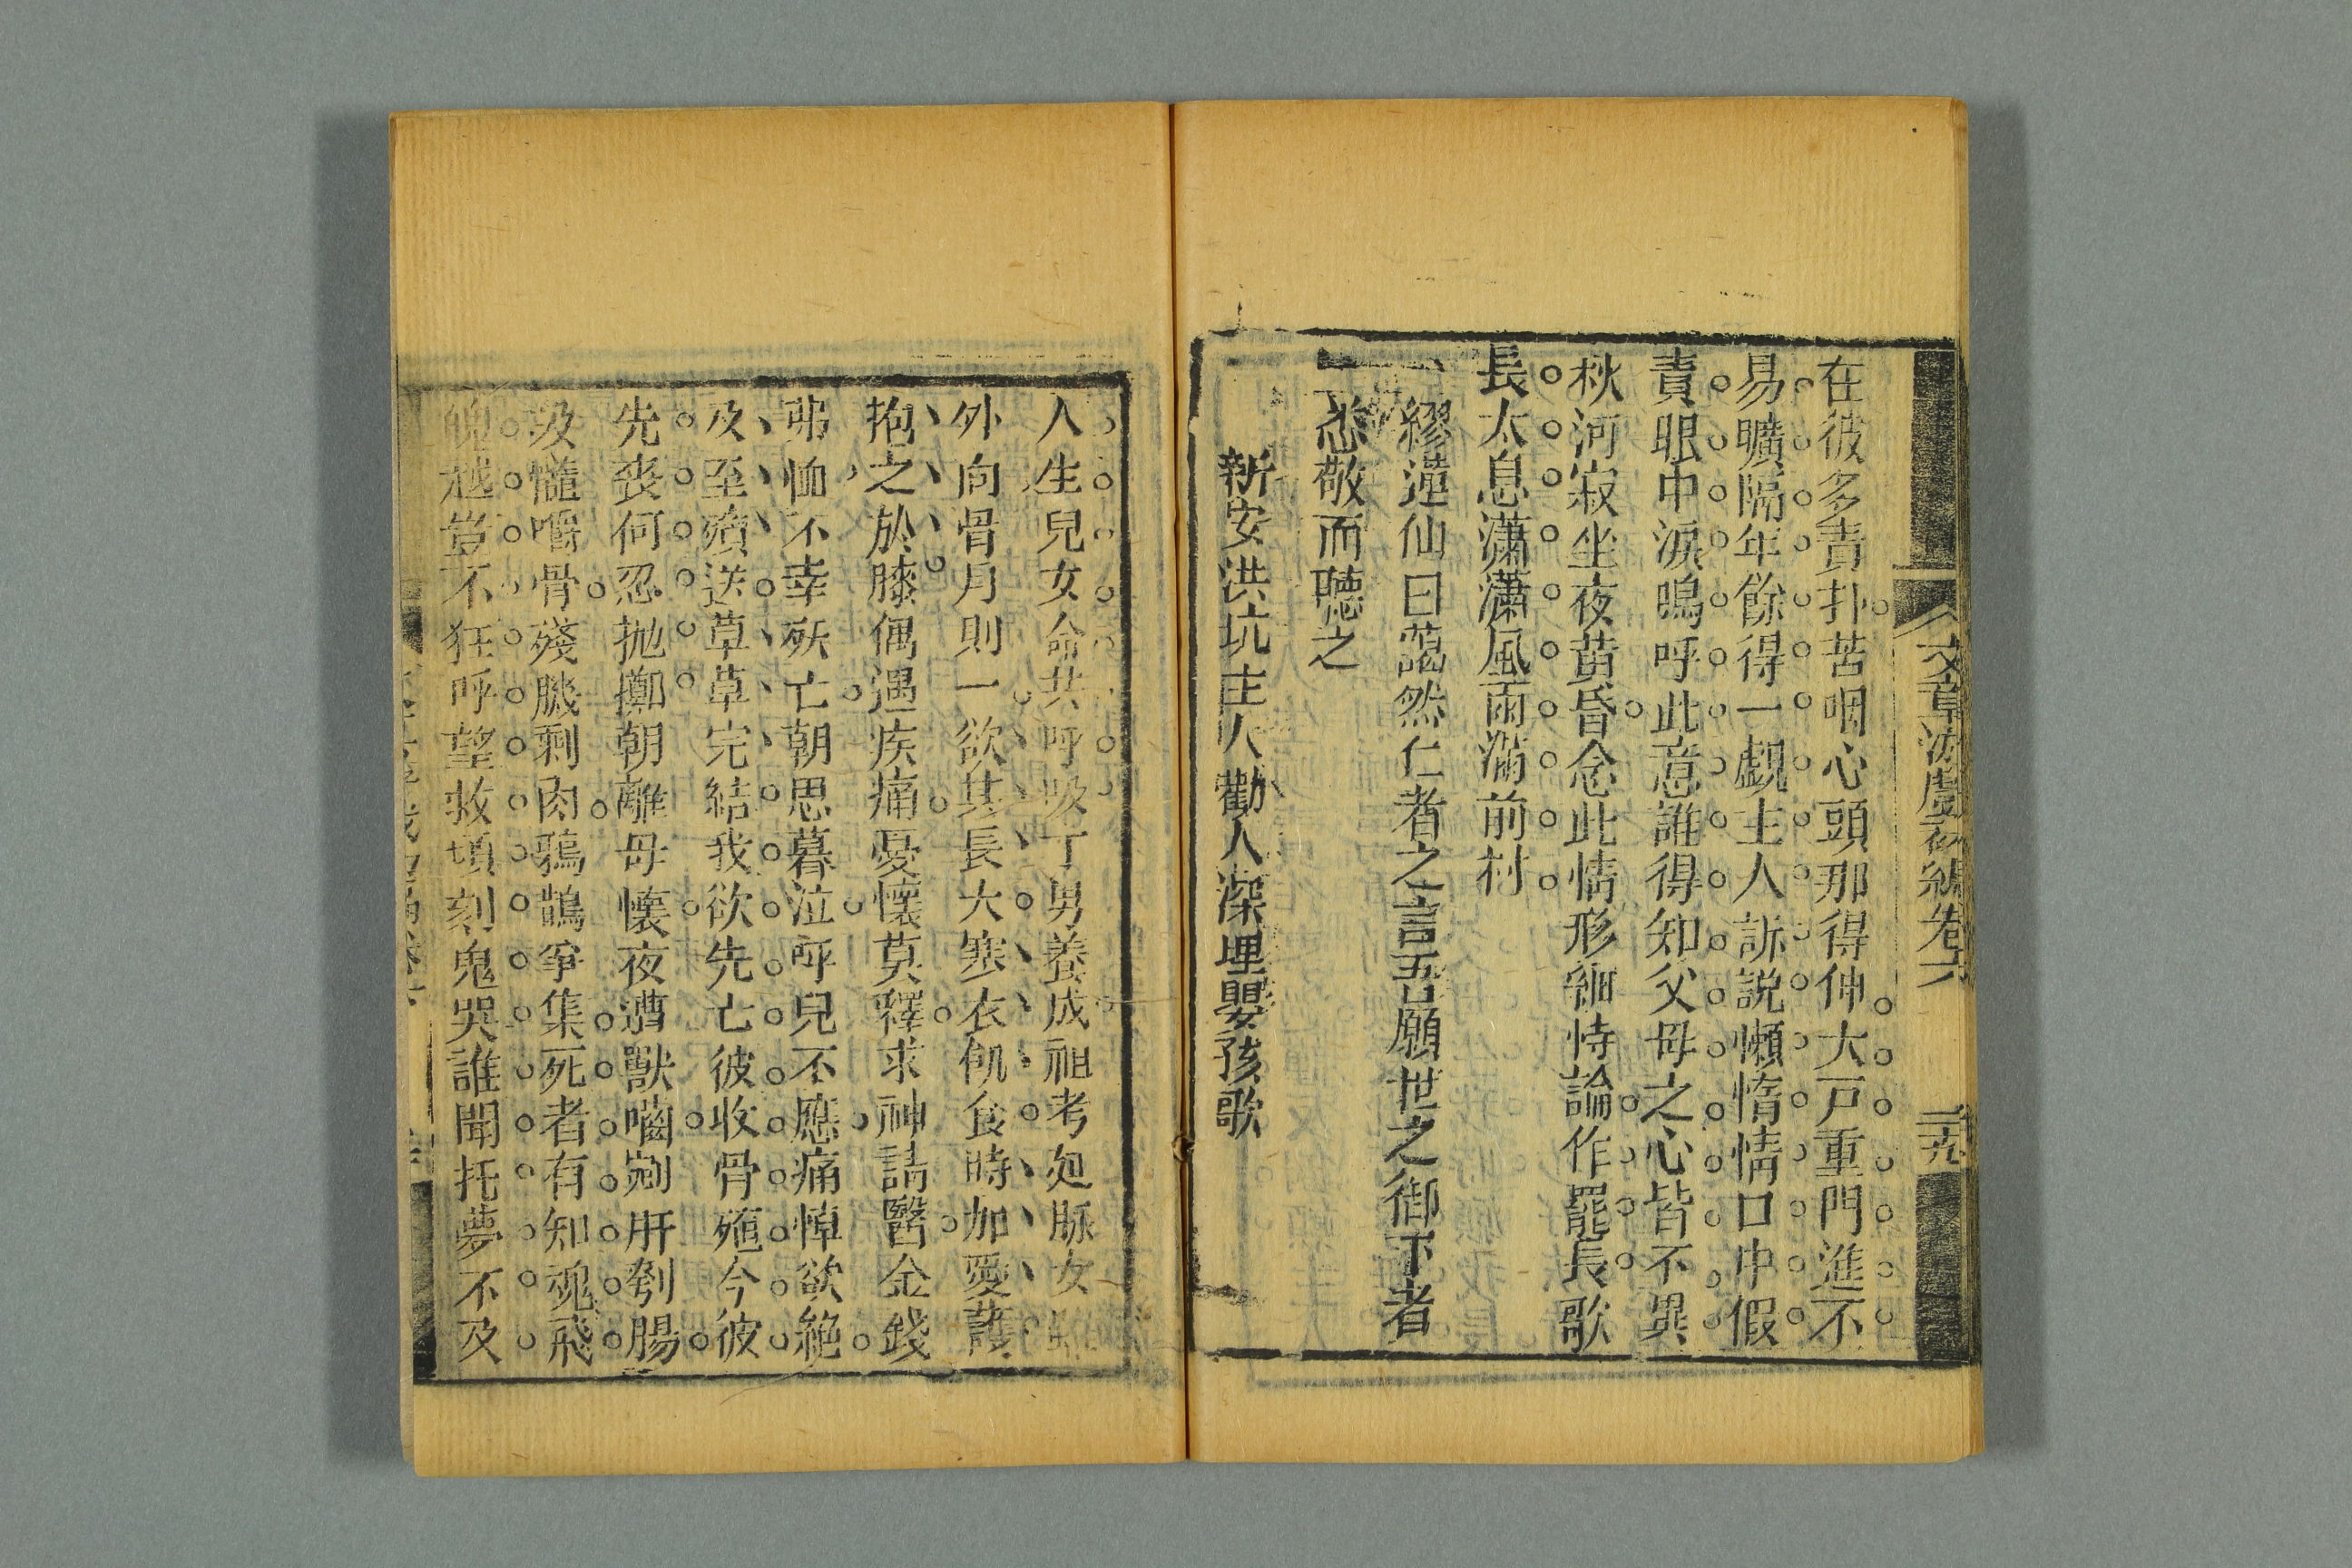 文章游戲初編卷六 三十九
在彼多責扑苦咽心頭那得伸大戸重門進不
易曠隔年餘得一覷主人訴説懶惰情口中假
責眼中淚嗚呼此意誰得知父母之心皆不異
秋河寂坐夜黄昏念此情形細恃論作罷長歌
長太息瀟瀟風雨滿前村
繆蓮仙曰藹然仁者之言吾願世之御下者
悉敬而聽之
新安洪坑主人勸人深埋嬰孩歌
人生兒女命共呼吸丁男養成祖考廵脈女雖
外向骨月則一欲其長大寒衣飢食時加愛護
抱之於膝偶遇疾痛憂懷莫釋求神請醫金錢
弗恤不幸殀亡朝思暮泣呼兒不應痛悼欲絶
及至殯送草草完結我欲先亡彼收骨殖今彼
先喪何忍抛擲朝離母懷夜遭獸嚙剜肝刳腸
汲髓嚼骨殘臟剩肉鴉鵲爭集死者有知魂飛
魄越豈不狂呼望救頃刻鬼哭誰聞托夢不及